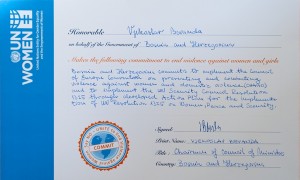 UN
WOMEN
Honorable Vjekoslav Bevanda
on behalf of the Government of Bosnia and Herzegovina
makes the following commitment to end violence against women and girls
Bosnia and Herzegovina commits to implement the Council
of Europe Convention on preventing and combating
violence against women and domestic violence
and to implement the UN Security Council Resolution
1325 through developed Action Plan for the implementa
tion of UN Resolution 1325 on Women, Peace and Security.
COMMIT
Signed
Print Name: VJEKOSLAV BEVANDA
Title: Chairman of Council of Ministers
Country: Bosnia and Herzegovina